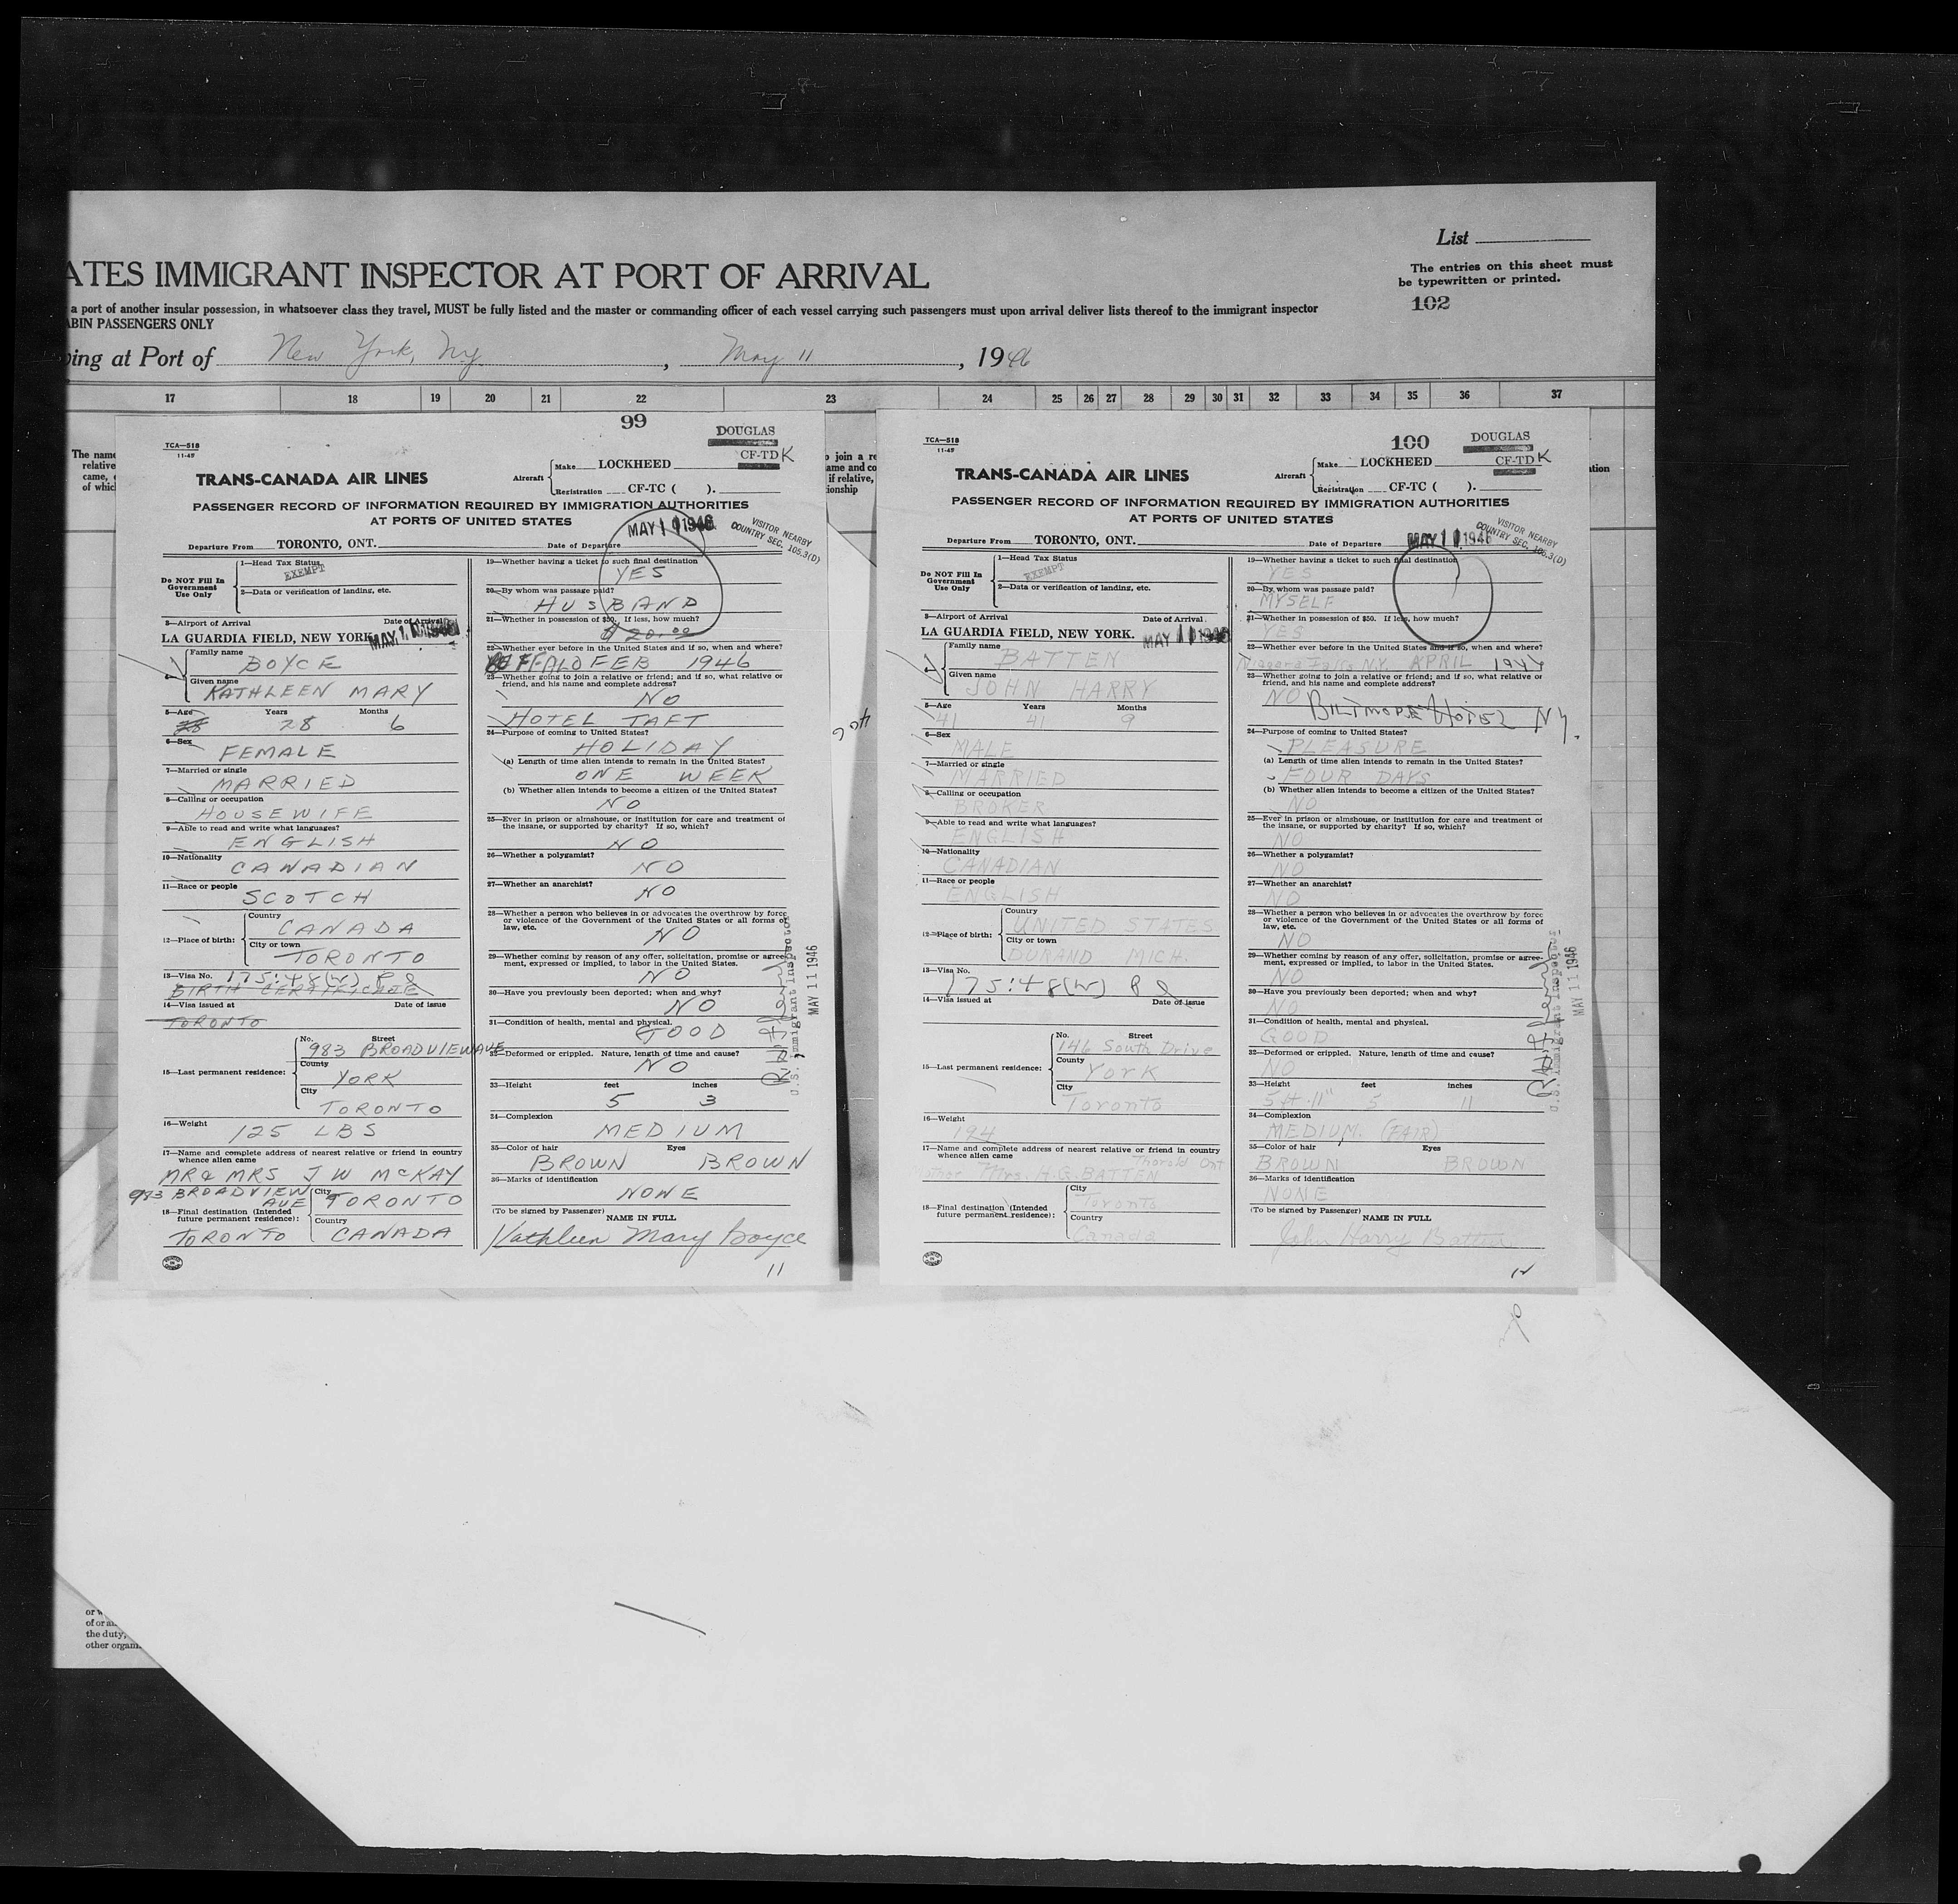 List
ATES IMMIGRANT INSPECTOR AT PORT OF ARRIVAL
The entries on this sheet must
be typewritten or printed.
a port of another insular possession, in whatsoever class they travel, MUST be fully listed and the master or commanding officer of each vessel carrying such passengers must upon arrival deliver lists thereof to the immigrant inspector
102
ABIN PASSENGERS ONLY
ing at Port of New York, Ny. , May 11 , 1946
17 18 19 20 21 22 23 24 25 26 27 28 29 30 31 32 33 34 35 36 37
The name
relative
came,
of which
99
DOUGLAS
TCA—518
11-45
CF-TDK
TRANS-CANADA AIR LINES
Aircraft Make LOCKHEED
Registration CF-TC ( ).
PASSENGER RECORD OF INFORMATION REQUIRED BY IMMIGRATION AUTHORITIES
AT PORTS OF UNITED STATES
MAY 10 1946
VISITOR NEARBY
COUNTRY SEC. 105.3(D)
Departure From TORONTO, ONT. Date of Departure
Do NOT Fill In
Government
Use Only
1—Head Tax Status
EXEMPT
2—Data or verification of landing, etc.
3—Airport of Arrival Date of Arrival
LA GUARDIA FIELD, NEW YORK.
Family name
BOYCE
Given name
KATHLEEN MARY
5—Age Years Months
28 28 6
6—Sex
FEMALE
7—Married or single
MARRIED
8—Calling or occupation
HOUSEWIFE
9—Able to read and write what languages?
ENGLISH
10—Nationality
CANADIAN
11—Race or people
SCOTCH
12—Place of birth:
Country
CANADA
City or town
TORONTO
13—Visa No. 175:48(W)
BIRTH CERTIFICATE
14—Visa issued at Date of issue
TORONTO
15—Last permanent residence:
No. Street
983 BROADVIEW AVE
County
YORK
City
TORONTO
16—Weight
125 LBS
17—Name and complete address of nearest relative or friend in country
whence alien came
MR & MRS J W McKAY
983 BROADVIEW
AVE
City
TORONTO
18—Final destination (Intended
future permanent residence):
Country
TORONTO CANADA
19—Whether having a ticket to such final destination
YES
20—By whom was passage paid?
HUSBAND
21—Whether in possession of $50. If less, how much?
$20.00
22—Whether ever before in the United States and if so, when and where?
FEB 1946
23—Whether going to join a relative or friend; and if so, what relative or
friend, and his name and complete address?
NO
HOTEL TAFT
24—Purpose of coming to United States?
HOLIDAY
(a) Length of time alien intends to remain in the United States?
ONE WEEK
(b) Whether alien intends to become a citizen of the United States?
NO
25—Ever in prison or almshouse, or institution for care and treatment of
the insane, or supported by charity? If so, which?
NO
26—Whether a polygamist?
NO
27—Whether an anarchist?
NO
28—Whether a person who believes in or advocates the overthrow by force
or violence of the Government of the United States or all forms of
law, etc.
NO
29—Whether coming by reason of any offer, solicitation, promise or agree-
ment, expressed or implied, to labor in the United States.
NO
30—Have you previously been deported; when and why?
NO
31—Condition of health, mental and physical.
GOOD
32—Deformed or crippled. Nature, length of time and cause?
NO
33—Height feet inches
5 3
34—Complexion
MEDIUM
35—Color of hair Eyes
BROWN BROWN
36—Marks of identification
NONE
(To be signed by Passenger)
NAME IN FULL
Kathleen Mary Boyce
11
U.S. Immigrant Inspector
MAY 11 1946
o join a re
ame and co
if relative,
ionship
ation
100
DOUGLAS
TCA—518
11-45
CF-TDK
TRANS-CANADA AIR LINES
Aircraft Make LOCKHEED
Registration CF-TC ( ).
PASSENGER RECORD OF INFORMATION REQUIRED BY IMMIGRATION AUTHORITIES
AT PORTS OF UNITED STATES
VISITOR NEARBY
COUNTRY SEC. 105.3(D)
Departure From TORONTO, ONT. Date of Departure MAY 10 1946
Do NOT Fill In
Government
Use Only
1—Head Tax Status
EXEMPT
2—Data or verification of landing, etc.
3—Airport of Arrival Date of Arrival
LA GUARDIA FIELD, NEW YORK.
Family name
BATTEN
Given name
JOHN HARRY
5—Age Years Months
41 41 9
6—Sex
MALE
7—Married or single
MARRIED
8—Calling or occupation
BROKER
9—Able to read and write what languages?
ENGLISH
10—Nationality
CANADIAN
11—Race or people
ENGLISH
12—Place of birth:
Country
UNITED STATES
City or town
DURAND MICH.
13—Visa No.
175:48(W)
14—Visa issued at Date of issue
15—Last permanent residence:
No. Street
146 South Drive
County
York
City
Toronto
16—Weight
194
17—Name and complete address of nearest relative or friend in country
whence alien came
Thorold Ont
Mrs. H.G. BATTEN
City
Toronto
18—Final destination (Intended
future permanent residence):
Country
Canada
19—Whether having a ticket to such final destination
YES
20—By whom was passage paid?
MYSELF
21—Whether in possession of $50. If less, how much?
YES
22—Whether ever before in the United States and if so, when and where?
Niagara Falls N.Y. APRIL
23—Whether going to join a relative or friend; and if so, what relative or
friend, and his name and complete address?
NO BILTMORE HOTEL NY.
24—Purpose of coming to United States?
PLEASURE
(a) Length of time alien intends to remain in the United States?
FOUR DAYS
(b) Whether alien intends to become a citizen of the United States?
NO
25—Ever in prison or almshouse, or institution for care and treatment of
the insane, or supported by charity? If so, which?
NO
26—Whether a polygamist?
NO
27—Whether an anarchist?
NO
28—Whether a person who believes in or advocates the overthrow by force
or violence of the Government of the United States or all forms of
law, etc.
NO
29—Whether coming by reason of any offer, solicitation, promise or agree-
ment, expressed or implied, to labor in the United States.
NO
30—Have you previously been deported; when and why?
NO
31—Condition of health, mental and physical.
GOOD
32—Deformed or crippled. Nature, length of time and cause?
NO
33—Height feet inches
5 ft. 11" 5 11
34—Complexion
MEDIUM. (FAIR)
35—Color of hair Eyes
BROWN BROWN
36—Marks of identification
NONE
(To be signed by Passenger)
NAME IN FULL
John Harry Batten
12
U.S. Immigrant Inspector
MAY 11 1946
the duty,
other organi